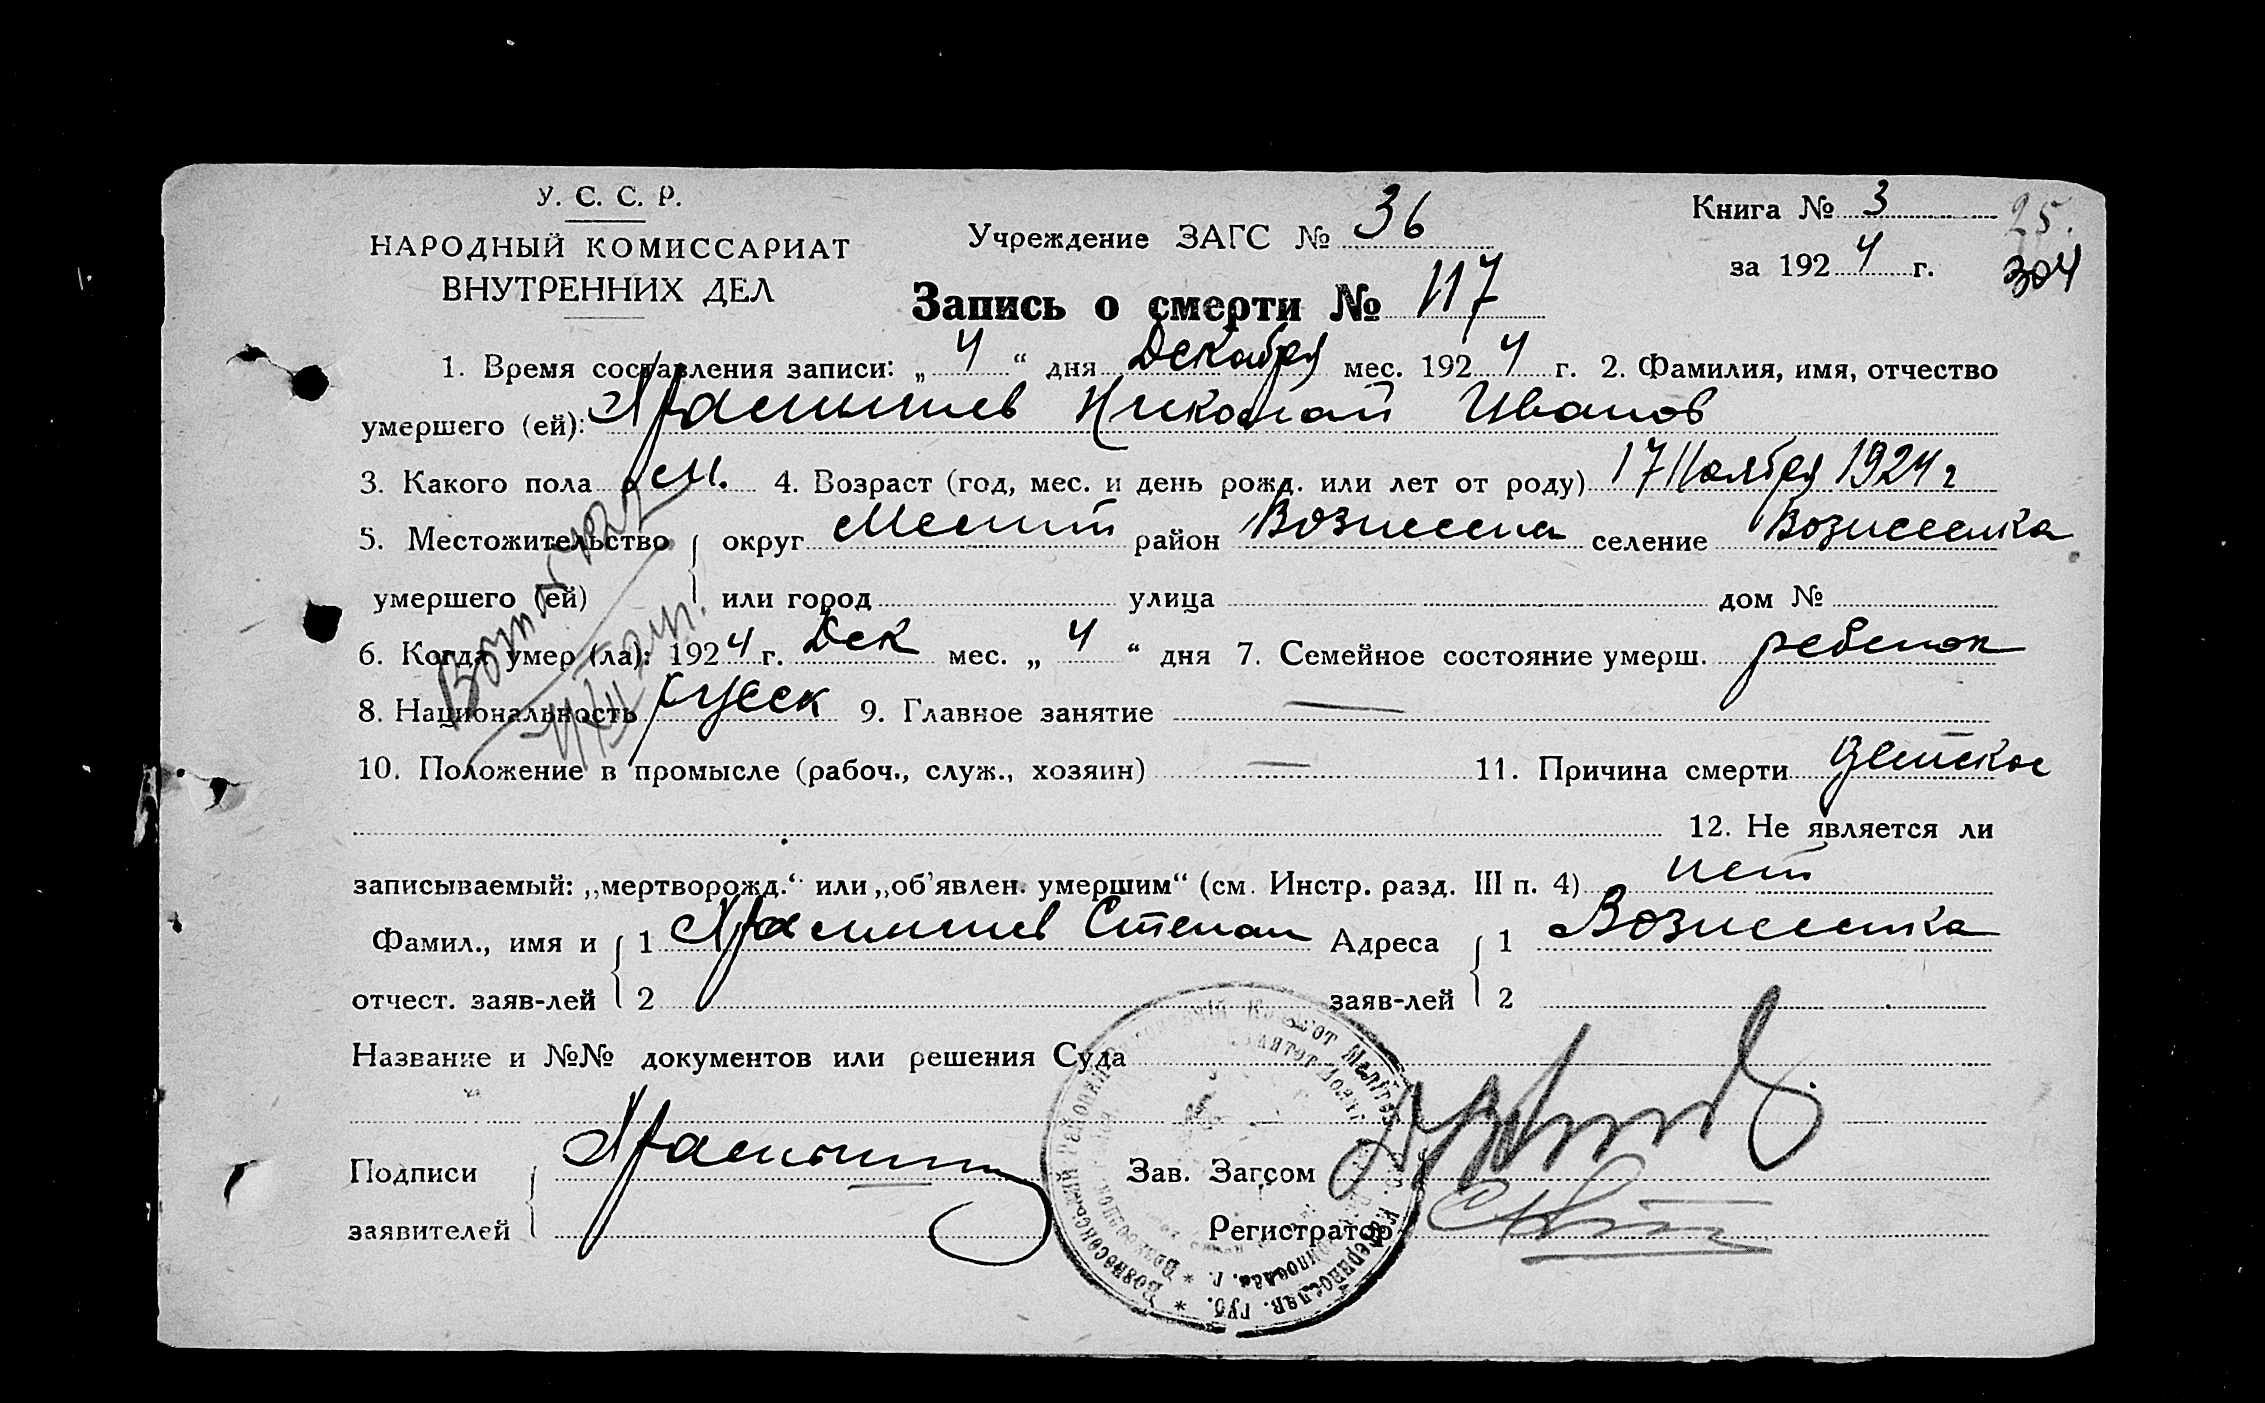 У. С. С. Р.
НАРОДНЫЙ КОМИССАРИАТ
ВНУТРЕННИХ ДЕЛ
Учреждение ЗАГС № 36
Книга № 3
25.
за 1924 г.
304
Запись о смерти № 117
1. Время составления записи: „4“ дня Декабря мес. 1924 г. 2. Фамилия, имя, отчество
умершего (ей): Николай Иванов
3. Какого пола м. 4. Возраст (год, мес. и день рожд. или лет от роду) 17 Ноября 1924 г
5. Местожительство округ Мелит район Вознесенск селение Вознесенка
умершего (ей) или город улица дом №
6. Когда умер (ла): 1924 г. Дек мес. „4“ дня 7. Семейное состояние умерш. ребенок
8. Национальность русск 9. Главное занятие —
10. Положение в промысле (рабоч., служ., хозяин) — 11. Причина смерти детская
12. Не является ли
записываемый: „мертворожд.“ или „об'явлен. умершим“ (см. Инстр. разд. III п. 4) нет
Фамил., имя и 1 Степан Адреса 1 Вознесенка
отчест. заяв-лей 2 заяв-лей 2
Название и №№ документов или решения Суда
Подписи Зав. Загсом
заявителей Регистратор